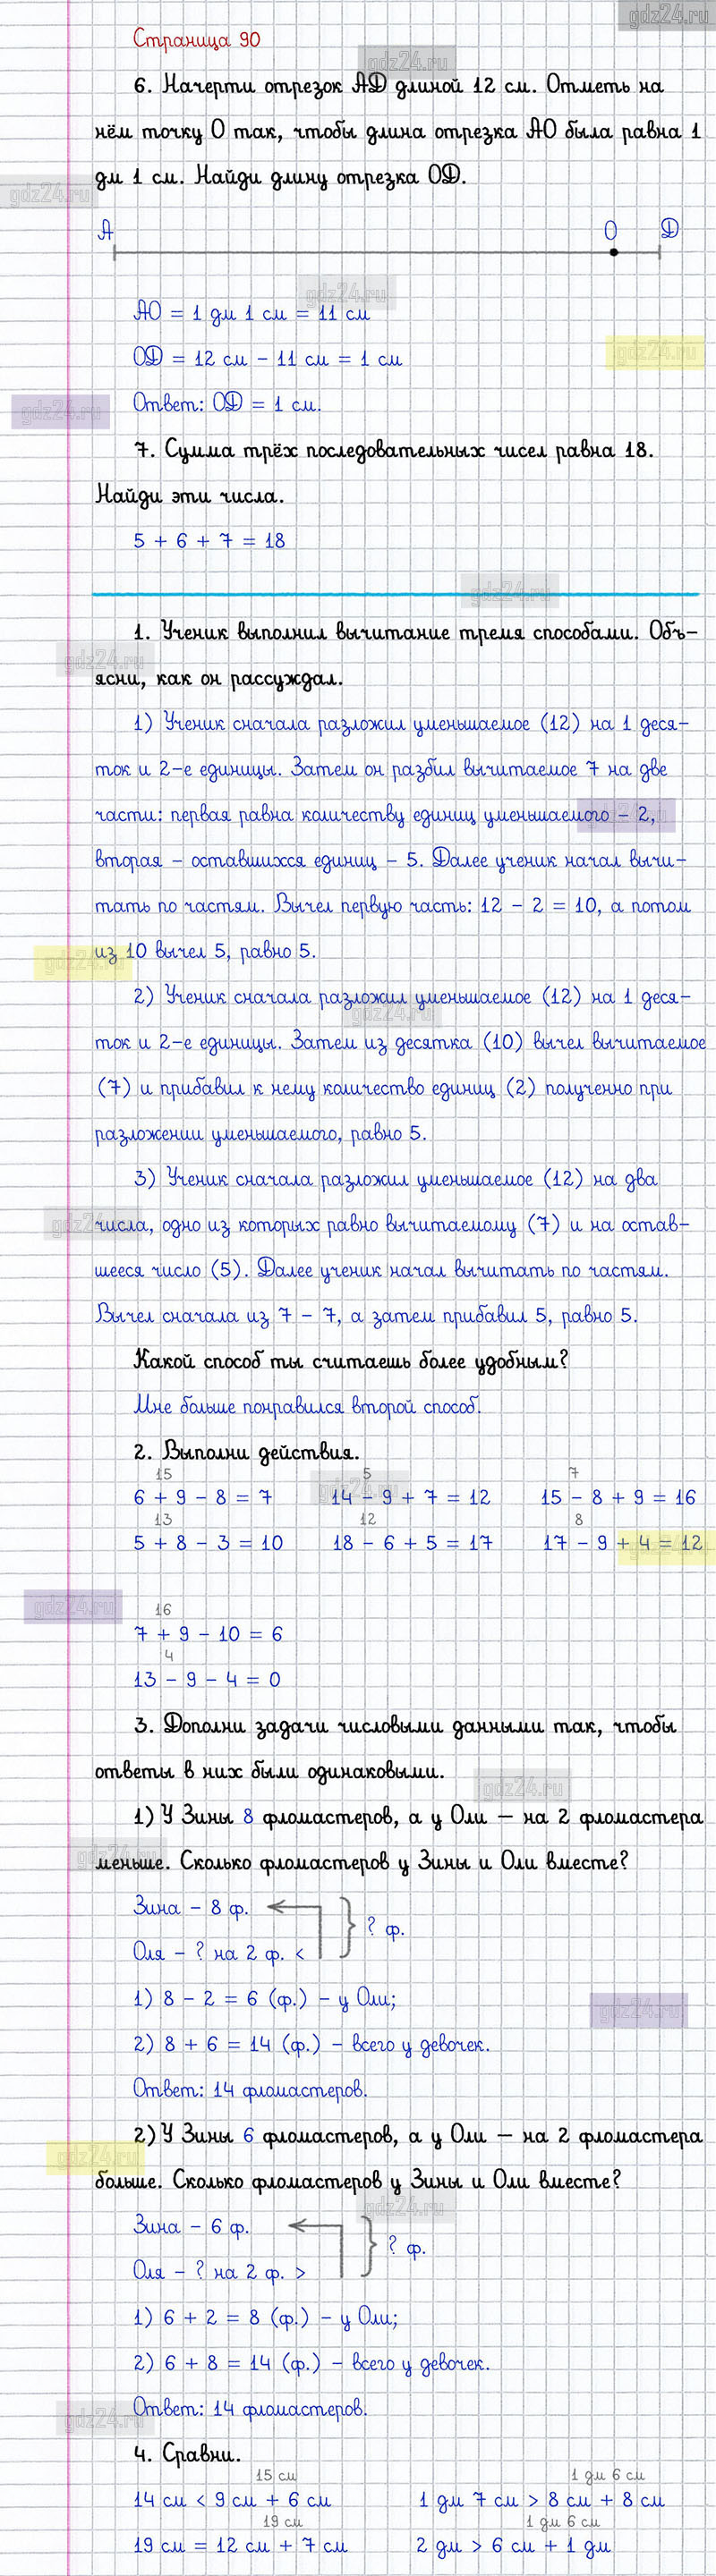 gdz24.ru
Страница 90
gdz24.ru
6. Начерти отрезок АD длиной 12 см. Отметь на
нём точку О так, чтобы длина отрезка АО была равна 1
дм 1 см. Найди длину отрезка OD.
gdz24.ru
А О D
gdz24.ru
АО = 1 дм 1 см = 11 см
gdz24.ru
OD = 12 см - 11 см = 1 см
gdz24.ru
Ответ: OD = 1 см.
7. Сумма трёх последовательных чисел равна 18.
Найди эти числа.
5 + 6 + 7 = 18
gdz24.ru
1. Ученик выполнил вычитание тремя способами. Объ-
gdz24.ru
ясни, как он рассуждал.
1) Ученик сначала разложил уменьшаемое (12) на 1 деся-
ток и 2-е единицы. Затем он разбил вычитаемое 7 на две
части: первая равна количеству единиц уменьшаемого - 2,
gdz24.ru
вторая - оставшихся единиц - 5. Далее ученик начал вычи-
тать по частям. Вычел первую часть: 12 - 2 = 10, а потом
из 10 вычел 5, равно 5.
gdz24.ru
2) Ученик сначала разложил уменьшаемое (12) на 1 деся-
gdz24.ru
ток и 2-е единицы. Затем из десятка (10) вычел вычитаемое
(7) и прибавил к нему количество единиц (2) полученно при
разложении уменьшаемого, равно 5.
3) Ученик сначала разложил уменьшаемое (12) на два
gdz24.ru
числа, одно из которых равно вычитаемому (7) и на остав-
шееся число (5). Далее ученик начал вычитать по частям.
Вычел сначала из 7 - 7, а затем прибавил 5, равно 5.
Какой способ ты считаешь более удобным?
Мне больше понравился второй способ.
2. Выполни действия.
15 5 7
gdz24.ru
6 + 9 - 8 = 7 14 - 9 + 7 = 12 15 - 8 + 9 = 16
13 12 8
5 + 8 - 3 = 10 18 - 6 + 5 = 17 17 - 9 + 4 = 12
gdz24.ru
gdz24.ru
16
7 + 9 - 10 = 6
4
13 - 9 - 4 = 0
3. Дополни задачи числовыми данными так, чтобы
ответы в них были одинаковыми.
gdz24.ru
1) У Зины 8 фломастеров, а у Оли — на 2 фломастера
gdz24.ru
меньше. Сколько фломастеров у Зины и Оли вместе?
Зина - 8 ф.
? ф.
Оля - ? на 2 ф. <
1) 8 - 2 = 6 (ф.) - у Оли;
gdz24.ru
2) 8 + 6 = 14 (ф.) - всего у девочек.
Ответ: 14 фломастеров.
2) У Зины 6 фломастеров, а у Оли — на 2 фломастера
gdz24.ru
больше. Сколько фломастеров у Зины и Оли вместе?
gdz24.ru
Зина - 6 ф.
? ф.
Оля - ? на 2 ф. >
1) 6 + 2 = 8 (ф.) - у Оли;
2) 6 + 8 = 14 (ф.) - всего у девочек.
Ответ: 14 фломастеров.
gdz24.ru
4. Сравни.
15 см 1 дм 6 см
14 см < 9 см + 6 см 1 дм 7 см > 8 см + 8 см
19 см 1 дм 6 см
19 см = 12 см + 7 см 2 дм > 6 см + 1 дм